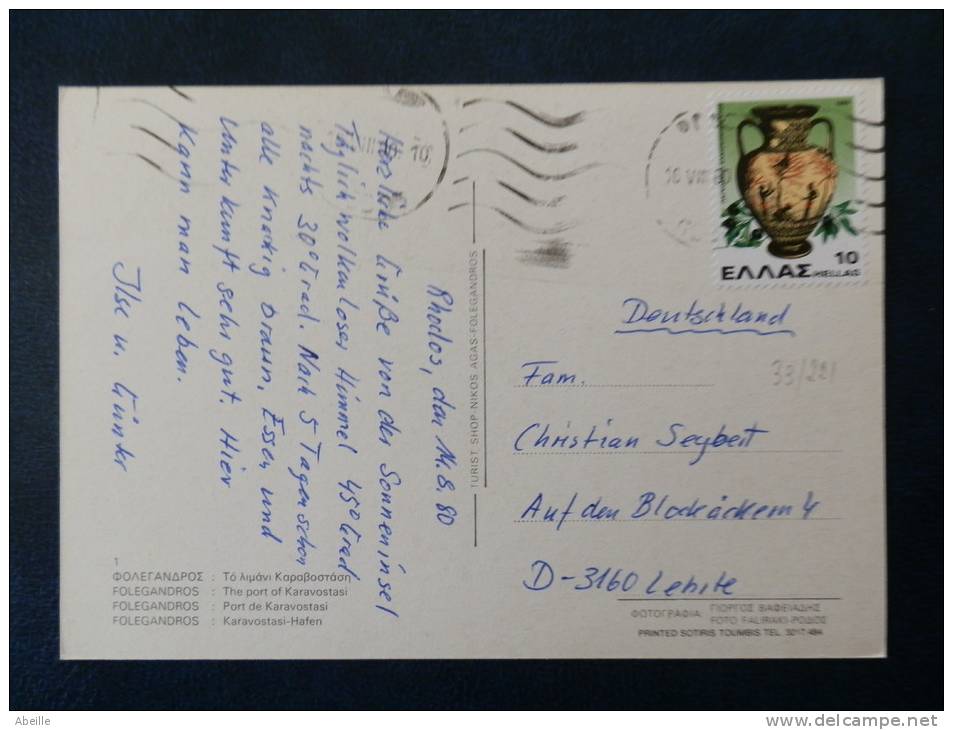 Rhodos, den 11.8.80
Herzliche Grüße von der Sonneninsel
Täglich wolkenloser Himmel 45° Grad
nachts 30° Grad. Nach 5 Tagen schon
alle knackig braun, Essen und
Unterkunft sehr gut. Hier
kann man leben.
Ilse u. Günter
1
ΦΟΛΕΓΑΝΔΡΟΣ : Τό λιμάνι Καραβοστάση
FOLEGANDROS : The port of Karavostasi
FOLEGANDROS : Port de Karavostasi
FOLEGANDROS : Karavostasi-Hafen
TURIST SHOP NIKOS AGAS-FOLEGANDROS
10
ΕΛΛΑΣ HELLAS
Deutschland
33/221
Fam.
Christian Seybert
Auf den Blockäckern 4
D-3160 Lehrte
ΦΩΤΟΓΡΑΦΙΑ: ΓΙΩΡΓΟΣ ΒΑΦΕΙΑΔΗΣ
FOTO FALIRAKI-ΡΟΔΟΣ
PRINTED SOTIRIS TOUMBIS TEL. 3217-484
Abeille
www.delcampe.net